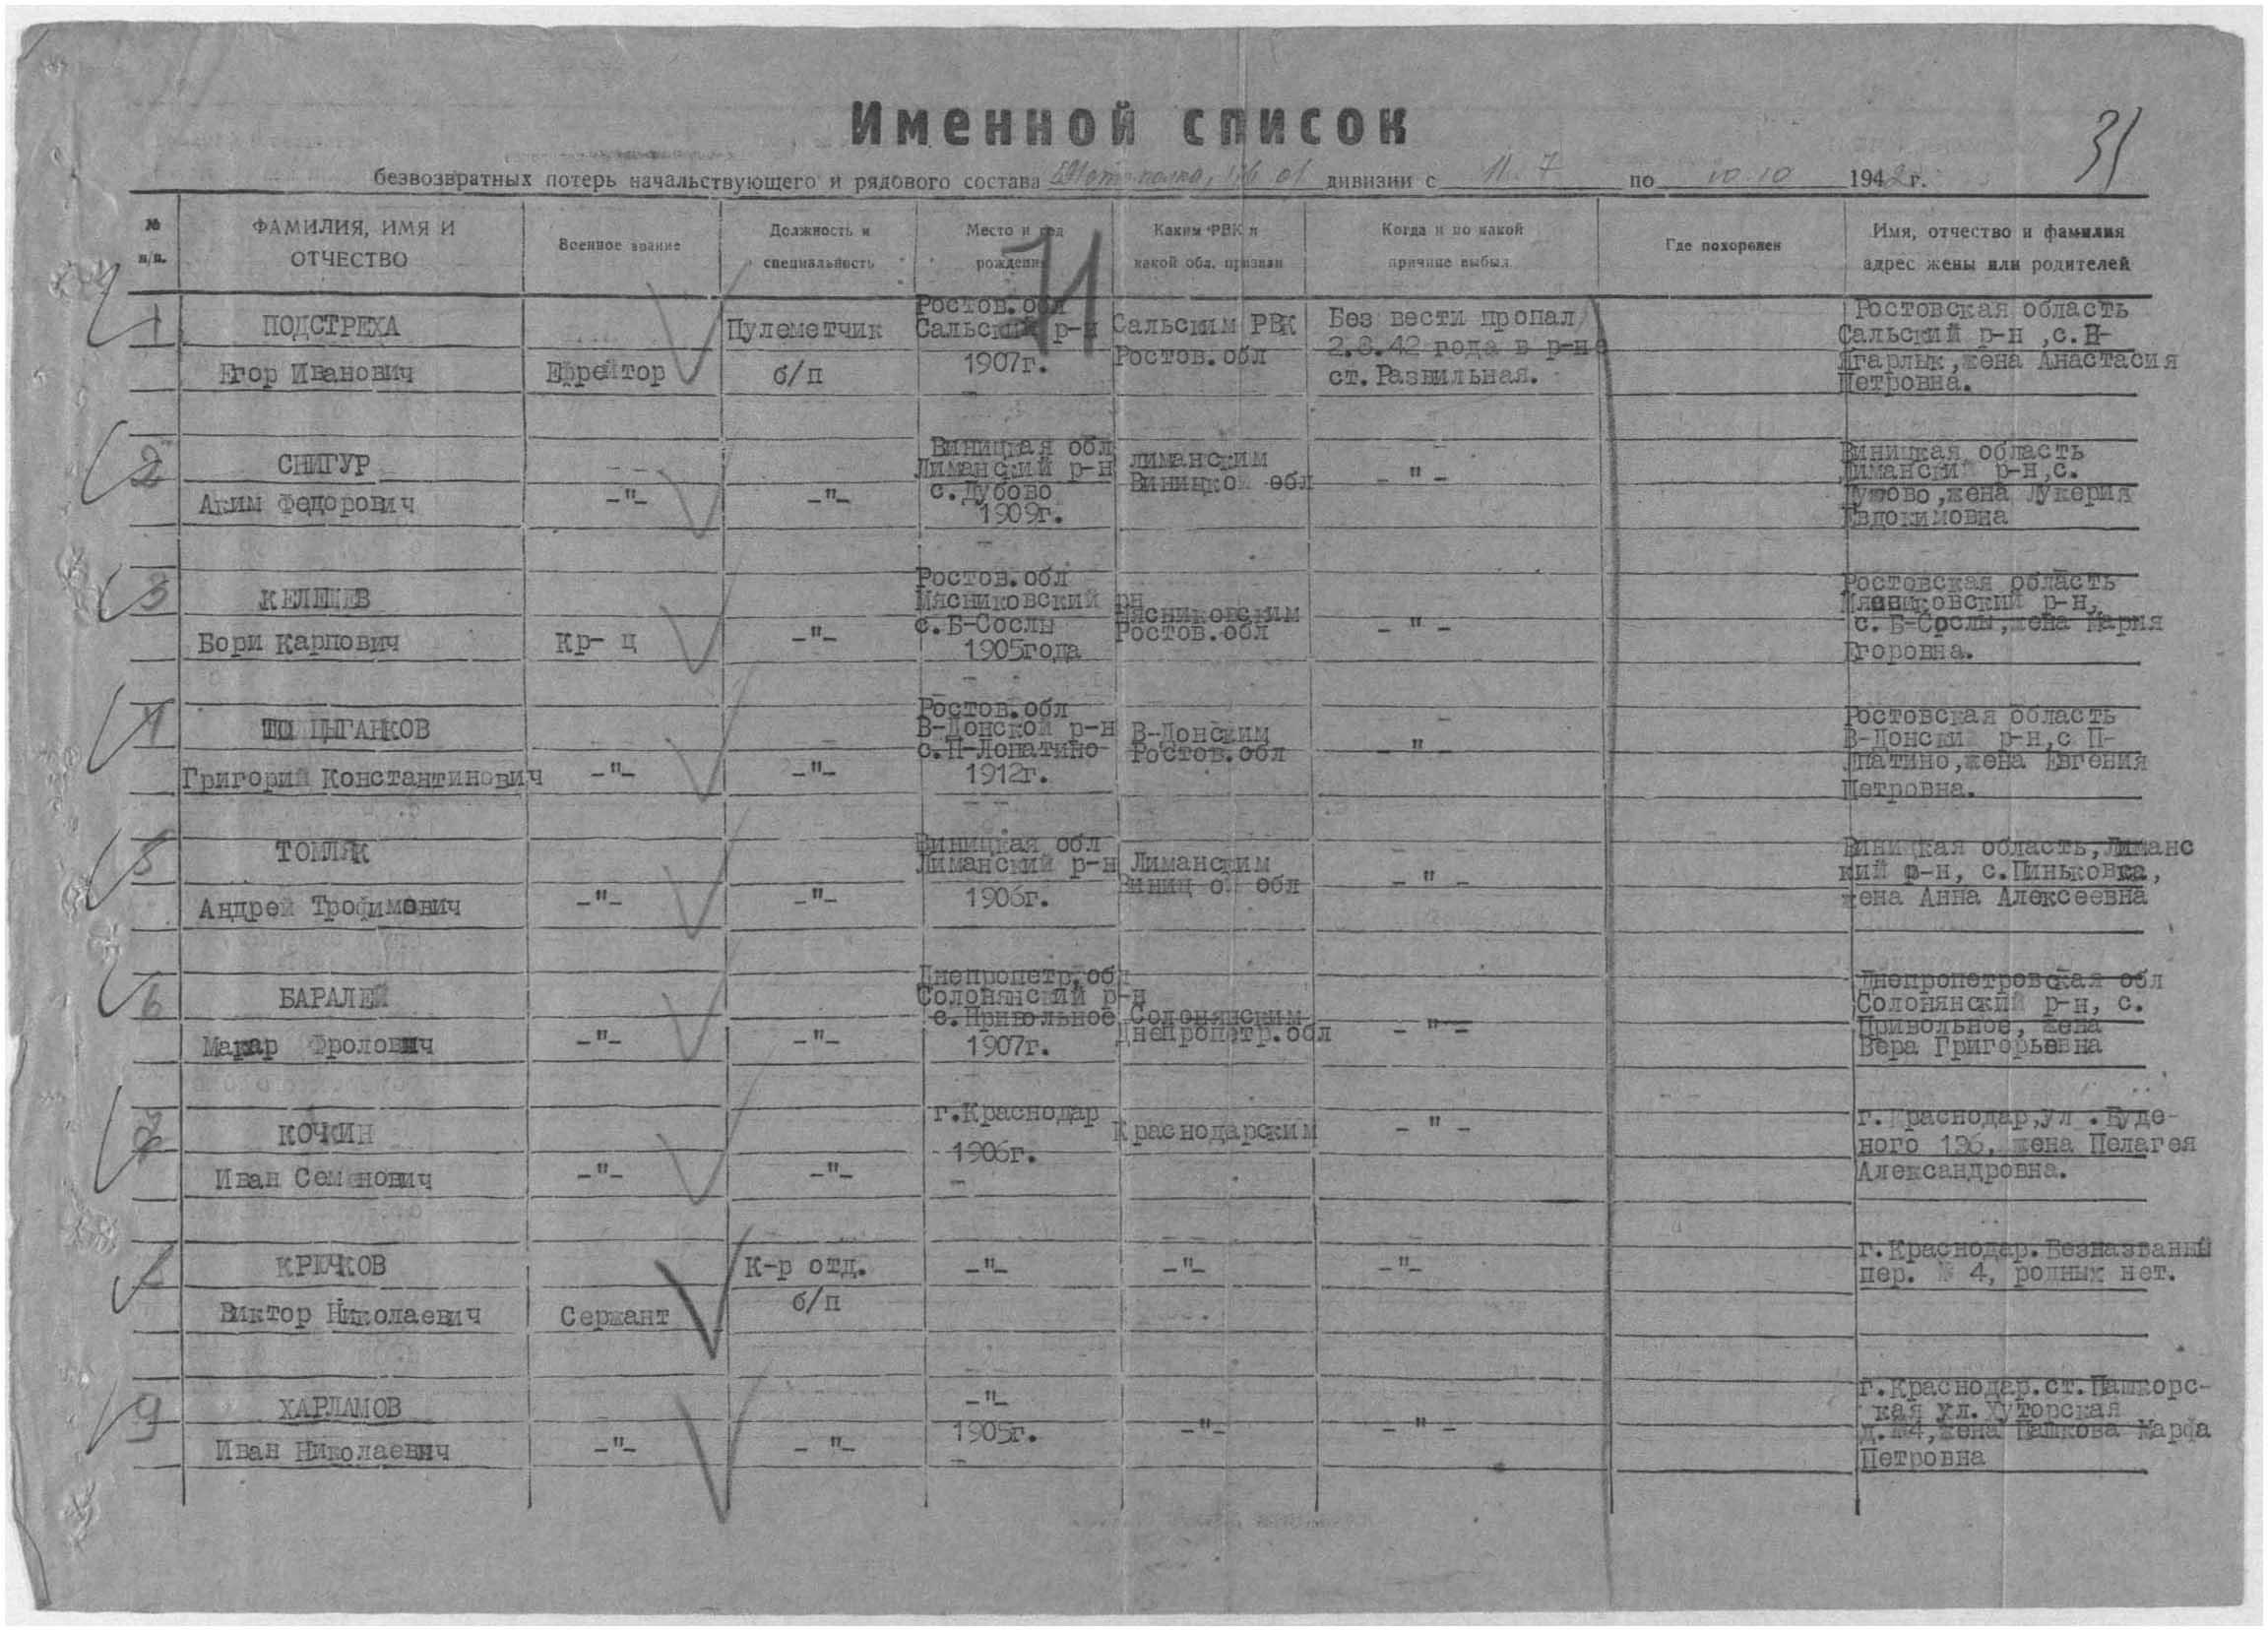 31
Именной список
безвозвратных потерь начальствующего и рядового состава полка, дивизии с 11.7 по 10.10 1942 г.
№ п/п.
ФАМИЛИЯ, ИМЯ И ОТЧЕСТВО
Военное звание
Должность и специальность
Место и год рождения
Каким РВК и какой обл. призван
Когда и по какой причине выбыл
Где похоронен
Имя, отчество и фамилия адрес жены или родителей
1
ПОДСТРЕХА
Егор Иванович
Ефрейтор
Пулеметчик
б/п
Ростов.обл
Сальский р-н
1907г.
Сальским РВК
Ростов.обл
Без вести пропал
2.8.42 года в р-не
ст.Развильная.
Ростовская область
Сальский р-н ,с.Н-
Егарлык,жена Анастасия
Петровна.
2
СНИГУР
Аким Федорович
-"-
-"-
Виницкая обл
Лиманский р-н
с.Дубово
1909г.
лиманским
Виницкой обл
-"-
Виницкая область
Лиманский р-н,с.
Дубово,жена Лукерия
Евдокимовна
3
Бори Карпович
Кр- ц
-"-
Ростов.обл
Мясниковский рн
с.Б-Соslы
1905года
Мясниковским
Ростов.обл
-"-
Ростовская область
Мясниковский р-н,
с. Б-Сослы,жена Мария
Егоровна.
4
ЦЫГАНКОВ
Григорий Константинович
-"-
-"-
Ростов.обл
В-Донской р-н
с.П-Лопатино
1912г.
В-Донским
Ростов.обл
-"-
Ростовская область
В-Донский р-н,с П-
Лпатино,жена Евгения
Петровна.
5
ТОМЛЯК
Андрей Трофимович
-"-
-"-
Виницкая обл
Лиманский р-н
1906г.
Лиманским
Виниц ой обл
-"-
Виницкая область,Лиманс
кий р-н, с.Пиньковка,
жена Анна Алексеевна
6
БАРАЛЕЙ
Макар Фролович
-"-
-"-
Днепропетр.обл
Солонянский р-н
с.Привольное
1907г.
Солонянским
Днепропетр.обл
-"-
Днепропетровская обл
Солонянский р-н, с.
Привольное, жена
Вера Григорьевна
7
КОЧКИН
Иван Семенович
-"-
-"-
г.Краснодар
1906г.
Краснодарским
-"-
г.Краснодар,ул .Буде-
ного 136, жена Пелагея
Александровна.
КРЮЧКОВ
Виктор Николаевич
Сержант
К-р отд.
б/п
-"-
-"-
-"-
г.Краснодар.Безназванный
пер. № 4, родных нет.
9
ХАРЛАМОВ
Иван Николаевич
-"-
-"-
-"-
1905г.
-"-
-"-
г.Краснодар.ст.Пашкорс-
кая ул.Хуторская
д.№4,жена Пашкова Марфа
Петровна